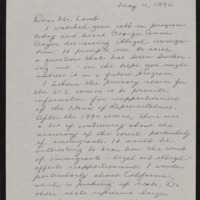 May 11, 1992
Dear Mr. Lamb:
I watched your call-in program
today and heard George Anne
Geyer discussing illegal immigra-
tion. It prompted me to raise
a question that has been bother-
ing me - in the hope you might
address it in a future program.
I believe the primary reason for
the U.S. census is to provide
information for reapportionment
of the House of Representatives.
After the 1990 census, there was
a lot of controversy about the
accuracy of the count particularly
of immigrants. I would be
interested to hear how the count
of immigrants - legal and illegal -
affects apportionment. I wonder
particularly about California
which is picking up seats. Do
these seats represent large